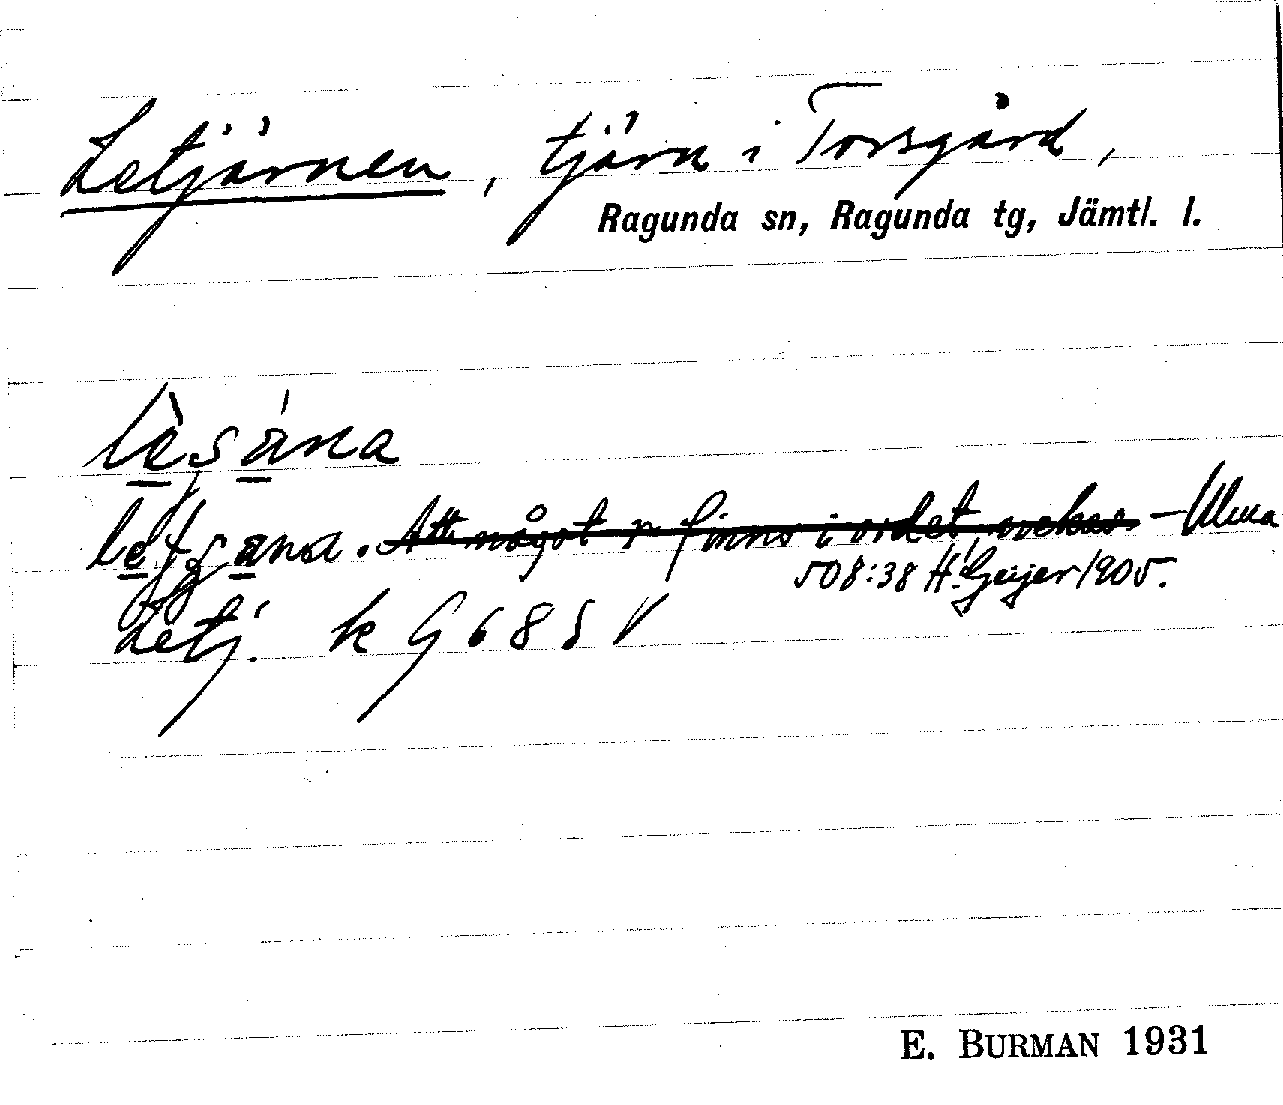 Letjärnen, tjärn i Torsgård,
Ragunda sn, Ragunda tg, Jämtl. l.
Att något r finns i ordet, nekas. – Ulma
508:38 H. Geijer 1905.
Letj. k G 68 S V
E. BURMAN 1931